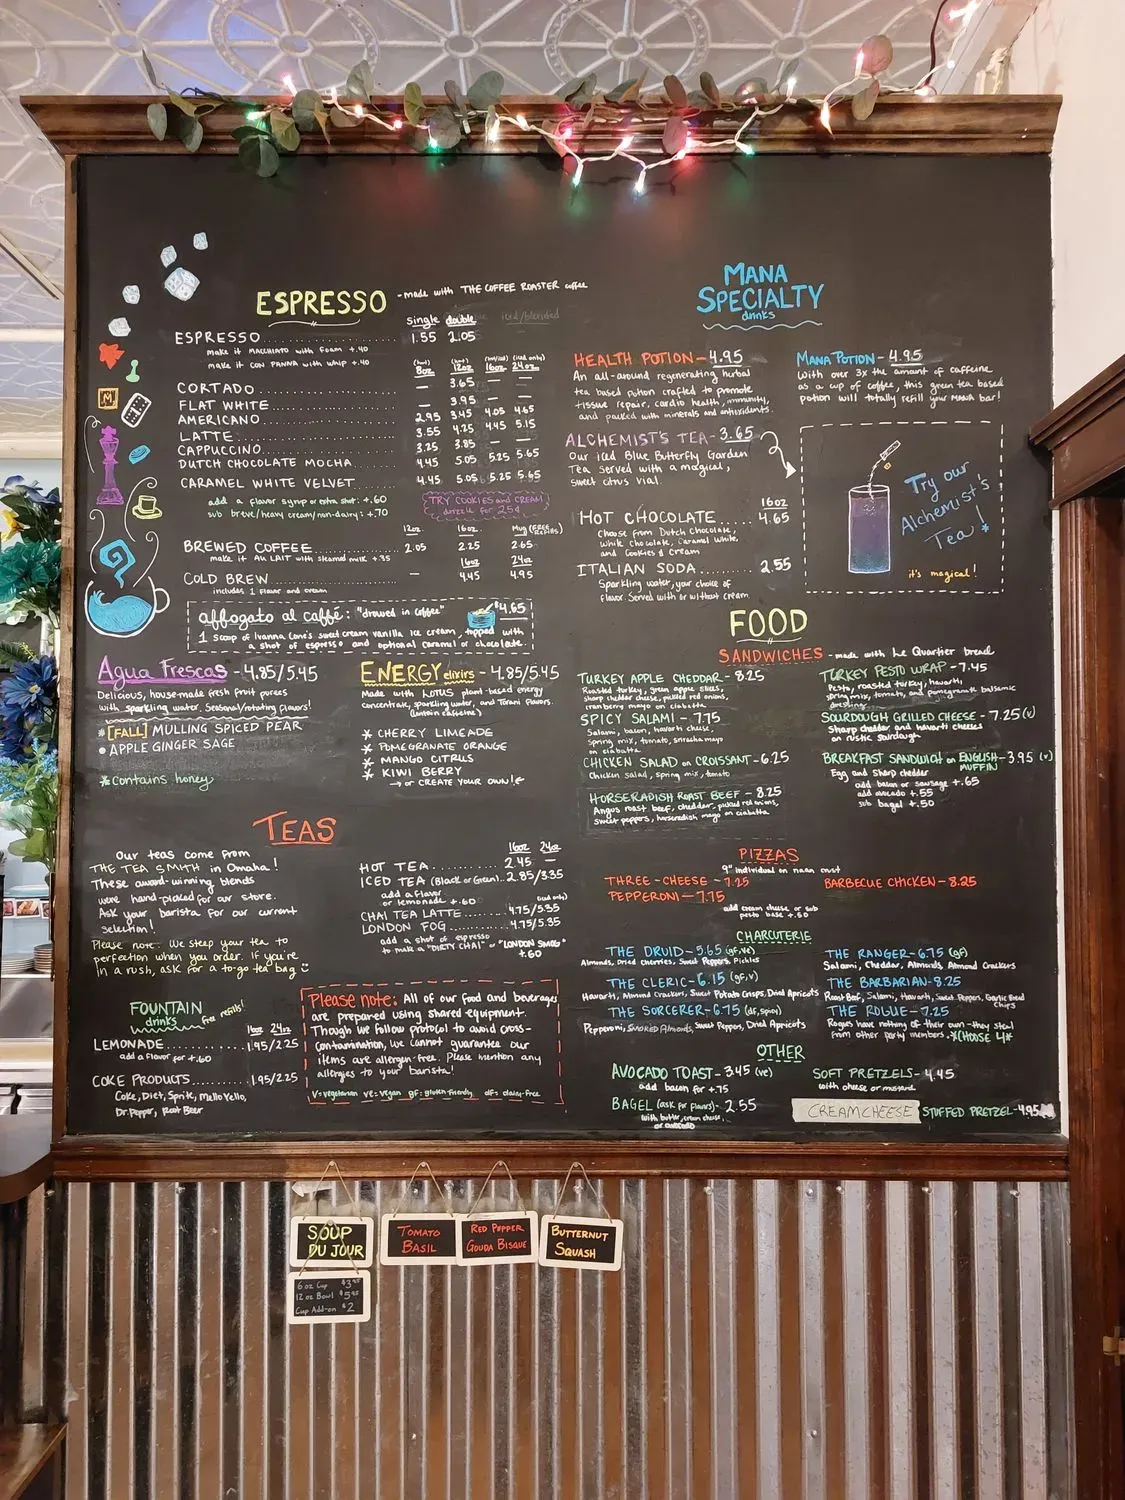 ESPRESSO - made with THE COFFEE ROASTER coffee
single double iced/blended
ESPRESSO 1.55 2.05
make it MACCHIATO with foam +.40
make it CON PANNA with whip +.40
(hot) (hot) (hot/iced) (iced only)
8oz 12oz 16oz 24oz
CORTADO — 3.65 — —
FLAT WHITE — 3.95 — —
AMERICANO 2.95 3.45 4.05 4.65
LATTE 3.55 4.25 4.45 5.15
CAPPUCCINO 3.25 3.85 — —
DUTCH CHOCOLATE MOCHA 4.45 5.05 5.25 5.65
CARAMEL WHITE VELVET 4.45 5.05 5.25 5.65
add a flavor syrup or extra shot: +.60
sub breve/heavy cream/non-dairy: +.70
TRY COOKIES and CREAM
drizzle for 25¢
12oz 16oz Mug (FREE REFILLS)
BREWED COFFEE 2.05 2.25 2.65
make it AU LAIT with steamed milk +.35
16oz 24oz
COLD BREW — 4.45 4.95
includes 1 flavor and cream
affogato al caffé: "drowned in coffee" $4.65
1 scoop of Ivanna Cone's sweet cream vanilla ice cream, topped with
a shot of espresso and optional caramel or chocolate.
Agua Frescas - 4.85/5.45
Delicious, house-made fresh fruit purees
with sparkling water. Seasonal/rotating flavors!
* [FALL] MULLING SPICED PEAR
• APPLE GINGER SAGE
*Contains honey
ENERGY elixirs - 4.85/5.45
Made with LOTUS plant-based energy
concentrate, sparkling water, and Torani flavors.
(contain caffeine)
* CHERRY LIMEADE
* POMEGRANATE ORANGE
* MANGO CITRUS
* KIWI BERRY
→ or CREATE YOUR OWN!←
TEAS
Our teas come from
THE TEA SMITH in Omaha!
These award-winning blends
were hand-picked for our store.
Ask your barista for our current
selection!
Please note: We steep your tea to
perfection when you order. If you're
in a rush, ask for a to-go tea bag :)
16oz 24oz
HOT TEA 2.45 —
ICED TEA (Black or Green) 2.85/3.35
add a flavor
or lemonade +.60
(iced only)
CHAI TEA LATTE 4.75/5.35
LONDON FOG 4.75/5.35
add a shot of espresso
to make a "DIRTY CHAI" or "LONDON SMOG"
+.60
FOUNTAIN
drinks free refills!
16oz 24oz
LEMONADE 1.95/2.25
add a flavor for +.60
COKE PRODUCTS 1.95/2.25
Coke, Diet, Sprite, Mello Yello,
Dr. Pepper, Root Beer
Please note: All of our food and beverages
are prepared using shared equipment.
Though we follow protocol to avoid cross-
contamination, we cannot guarantee our
items are allergen-free. Please mention any
allergies to your barista!
V=vegetarian ve=vegan gf=gluten-friendly df=dairy-free
MANA
SPECIALTY
drinks
HEALTH POTION - 4.95
An all-around regenerating herbal
tea based potion crafted to promote
tissue repair, cardio health, immunity,
and packed with minerals and antioxidants.
MANA POTION - 4.95
With over 3x the amount of caffeine
as a cup of coffee, this green tea based
potion will totally refill your MANA bar!
ALCHEMIST'S TEA - 3.65
Our iced Blue Butterfly Garden
Tea served with a magical,
sweet citrus vial.
Try our
Alchemist's
Tea!*
it's magical!
16oz
HOT CHOCOLATE 4.65
Choose from Dutch Chocolate,
White Chocolate, Caramel White,
and Cookies & Cream
ITALIAN SODA 2.55
Sparkling water, your choice of
flavor. Served with or without cream
FOOD
SANDWICHES - made with Le Quartier bread
TURKEY APPLE CHEDDAR - 8.25
Roasted turkey, green apple slices,
sharp cheddar cheese, pickled red onions,
cranberry mayo on ciabatta
SPICY SALAMI - 7.75
Salami, bacon, havarti cheese,
spring mix, tomato, sriracha mayo
on ciabatta
CHICKEN SALAD on CROISSANT - 6.25
Chicken salad, spring mix, tomato
HORSERADISH ROAST BEEF - 8.25
Angus roast beef, cheddar, pickled red onions,
sweet peppers, horseradish mayo on ciabatta
TURKEY PESTO WRAP - 7.45
Pesto, roasted turkey, havarti,
spring mix, tomato, and pomegranate balsamic
dressing
SOURDOUGH GRILLED CHEESE - 7.25 (v)
Sharp cheddar and havarti cheeses
on rustic sourdough
BREAKFAST SANDWICH on ENGLISH MUFFIN - 3.95 (v)
Egg and sharp cheddar
add bacon or sausage +.65
add avocado +.55
sub bagel +.50
PIZZAS
9" individual on naan crust
THREE-CHEESE - 7.25
PEPPERONI - 7.75
BARBECUE CHICKEN - 8.25
add cream cheese or sub
pesto base +.50
CHARCUTERIE
THE DRUID - 5.65 (gf, ve)
Almonds, Dried Cherries, Sweet Peppers, Pickles
THE CLERIC - 6.15 (gf, v)
Havarti, Almond Crackers, Sweet Potato Crisps, Dried Apricots
THE SORCERER - 6.75 (df, spicy)
Pepperoni, SMOKED Almonds, Sweet Peppers, Dried Apricots
THE RANGER - 6.75 (gf)
Salami, Cheddar, Almonds, Almond Crackers
THE BARBARIAN - 8.25
Roast Beef, Salami, Havarti, Sweet Peppers, Garlic Bread
Chips
THE ROGUE - 7.25
Rogues have nothing of their own - they steal
from other party members. *CHOOSE 4*
OTHER
AVOCADO TOAST - 3.45 (ve)
add bacon for +.75
BAGEL (ask for flavors) - 2.55
with butter, cream cheese,
or avocado
SOFT PRETZELS - 4.45
with cheese or mustard
CREAMCHEESE STUFFED PRETZEL - 4.95
SOUP
DU JOUR
TOMATO
BASIL
RED PEPPER
GOUDA BISQUE
BUTTERNUT
SQUASH
6 oz Cup $3.95
12 oz Bowl $5.95
Cup Add-on $2